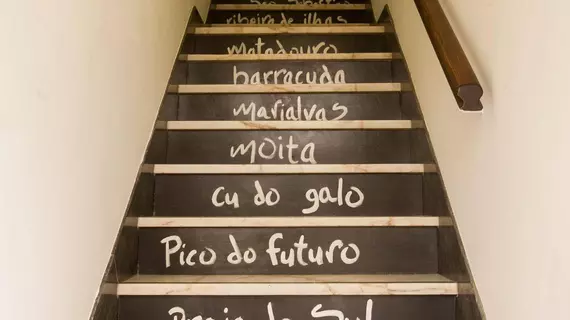 ribeira de ilhas
matadouro
barracuda
marialvas
moita
cu do galo
Pico do futuro
Praia do Sul